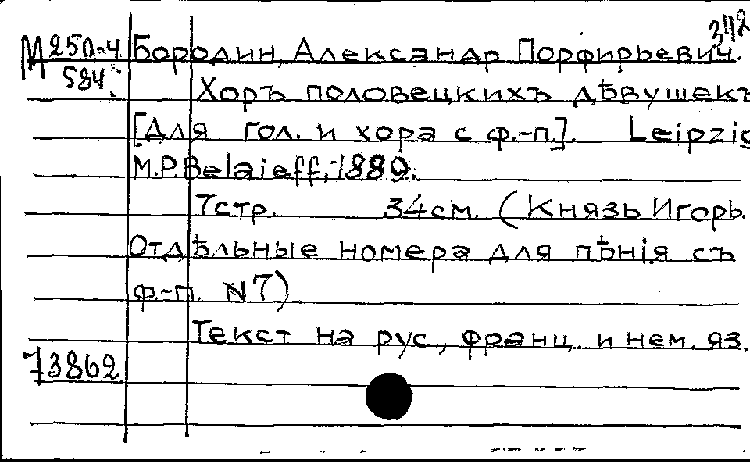 342
М 250-4 Бородин, Александр Порфирьевич.
584
Хоръ половецкихъ дѣвушекъ
[Для гол. и хора с ф.-п.]. Leipzig
M.P.Belaieff, 1889.
7стр. 34см. (Князь Игорь.
Отдѣльные номера для пѣнія съ
ф.-п. N7)
Текст на рус., франц. и нем. яз.
73862